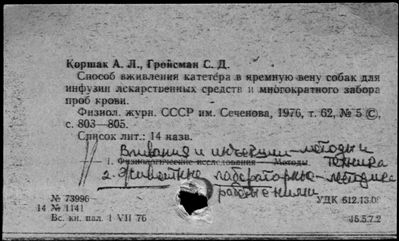 Коршак А. Л., Гройсман С. Д.
Способ вживления катетера в яремную вену собак для
инфузии лекарственных средств и многократного забора
проб крови.
Физиол. журн. СССР им. Сеченова, 1976, т. 62, № 5 ©,
с. 803—805.
Список лит.: 14 назв.
Вливания и инъекции — методы и
техника
1. Физиологические исследования — Методы
2. Животные лабораторные — методика
работы с ними
№ 73996
14 № 1141
Вс. кн. пал. 1 VII 76
УДК 612.13.08
15.5.7.2